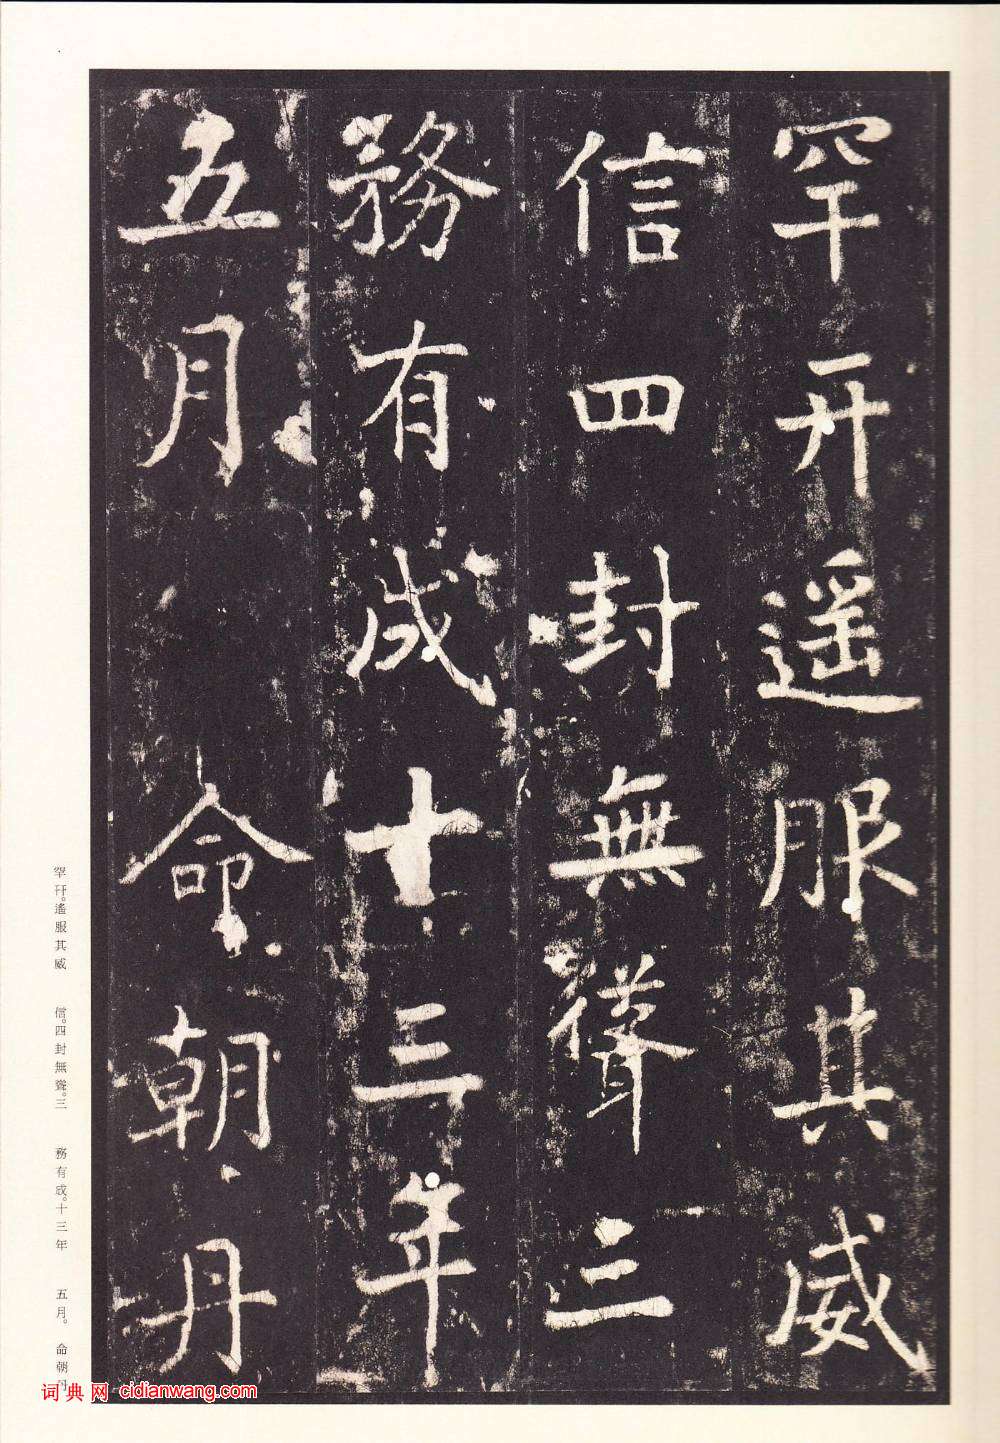 罕幵遥服其威
信四封無聳三
務有成十三年
五月　命朝丹
罕幵。遙服其威　信。四封無聳。三　務有成。十三年　五月。　命朝丹
词典网 cidianwang.com